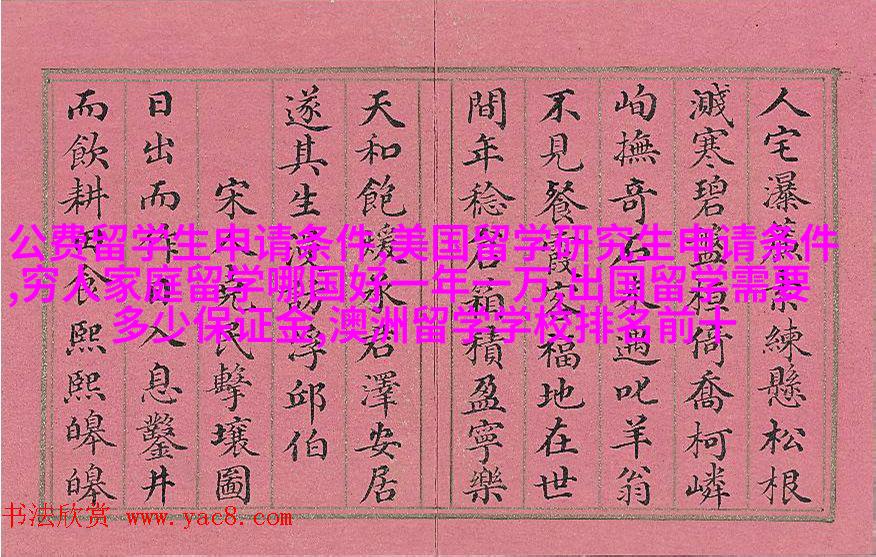 人宅瀑素練懸松根
濺寒碧盤桓倚喬柯嶙
峋撫奇石來遇叱羊翁
不見餐霞客福地在世
間年稔箱積盈寧樂
天和飽煖永君澤安居
遂其生浮邱伯
宋人堯民擊壤圖
日出而作日入息鑿井
而飲耕田食熙熙皞皞
公费留学生申请条件,美国留学研究生申请条件
,穷人家庭留学哪国好一年一万,出国留学需要
多少保证金,澳洲留学学校排名前十
书法欣赏 www.yac8.com